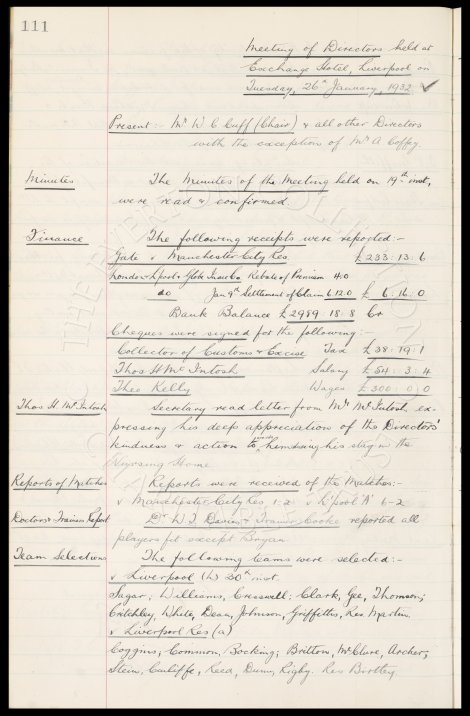 111
Meeting of Directors held at
Exchange Hotel, Liverpool on
Tuesday, 26th January, 1932
Present:- Mr W C Cuff (Chair) & all other Directors
with the exception of Mr A Coffey.
Minutes
The Minutes of the Meeting held on 19th inst,
were read & confirmed.
Finance
The following receipts were reported:-
Gate v Manchester City Res. £233:13:6
Rebate of Premium 4.0
do Jan 9th Settlement of Claim 6.12.0 £6:16:0
Bank Balance £2989:18:8 Cr
Cheques were signed for the following:-
Collector of Customs & Excise Tax £38:19:1
Thos H McIntosh Salary £54:3:4
Theo Kelly Wages £300:0:0
Thos. H. McIntosh
Secretary read letter from Mr McIntosh, ex-
pressing his deep appreciation of the Directors'
kindness & action to him during his stay in the
Nursing Home.
Reports of Matches
Reports were received of the Matches:-
v Manchester City Res 1-2 v L'pool 'A' 6-2
Doctors & Trainers Report
Dr W J Davies & Trainer Cooke reported all
players fit except Bryan
Team Selections
The following teams were selected:-
v Liverpool (h) 30th inst.
Sagar; Williams, Cresswell; Clark, Gee, Thomson;
Critchley, White, Dean, Johnson, Griffiths, Res. Martin.
v Liverpool Res (a)
Coggins; Common, Bocking; Britton, McClure, Archer;
Stein, Cunliffe, Reed, Dunn, Rigby. Res
THE EVERTON COLLECTION